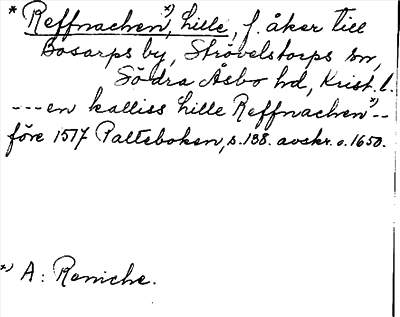 * Reffnachen*), lille, f. åker till
Bosarps by, Strövelstorps sn,
Södra Åsbo hd, Krist. l.
---en kalliss lille Reffnachen*)--
före 1517 Palteboken, s. 138. avskr. o. 1650.
*) A: Reniche.